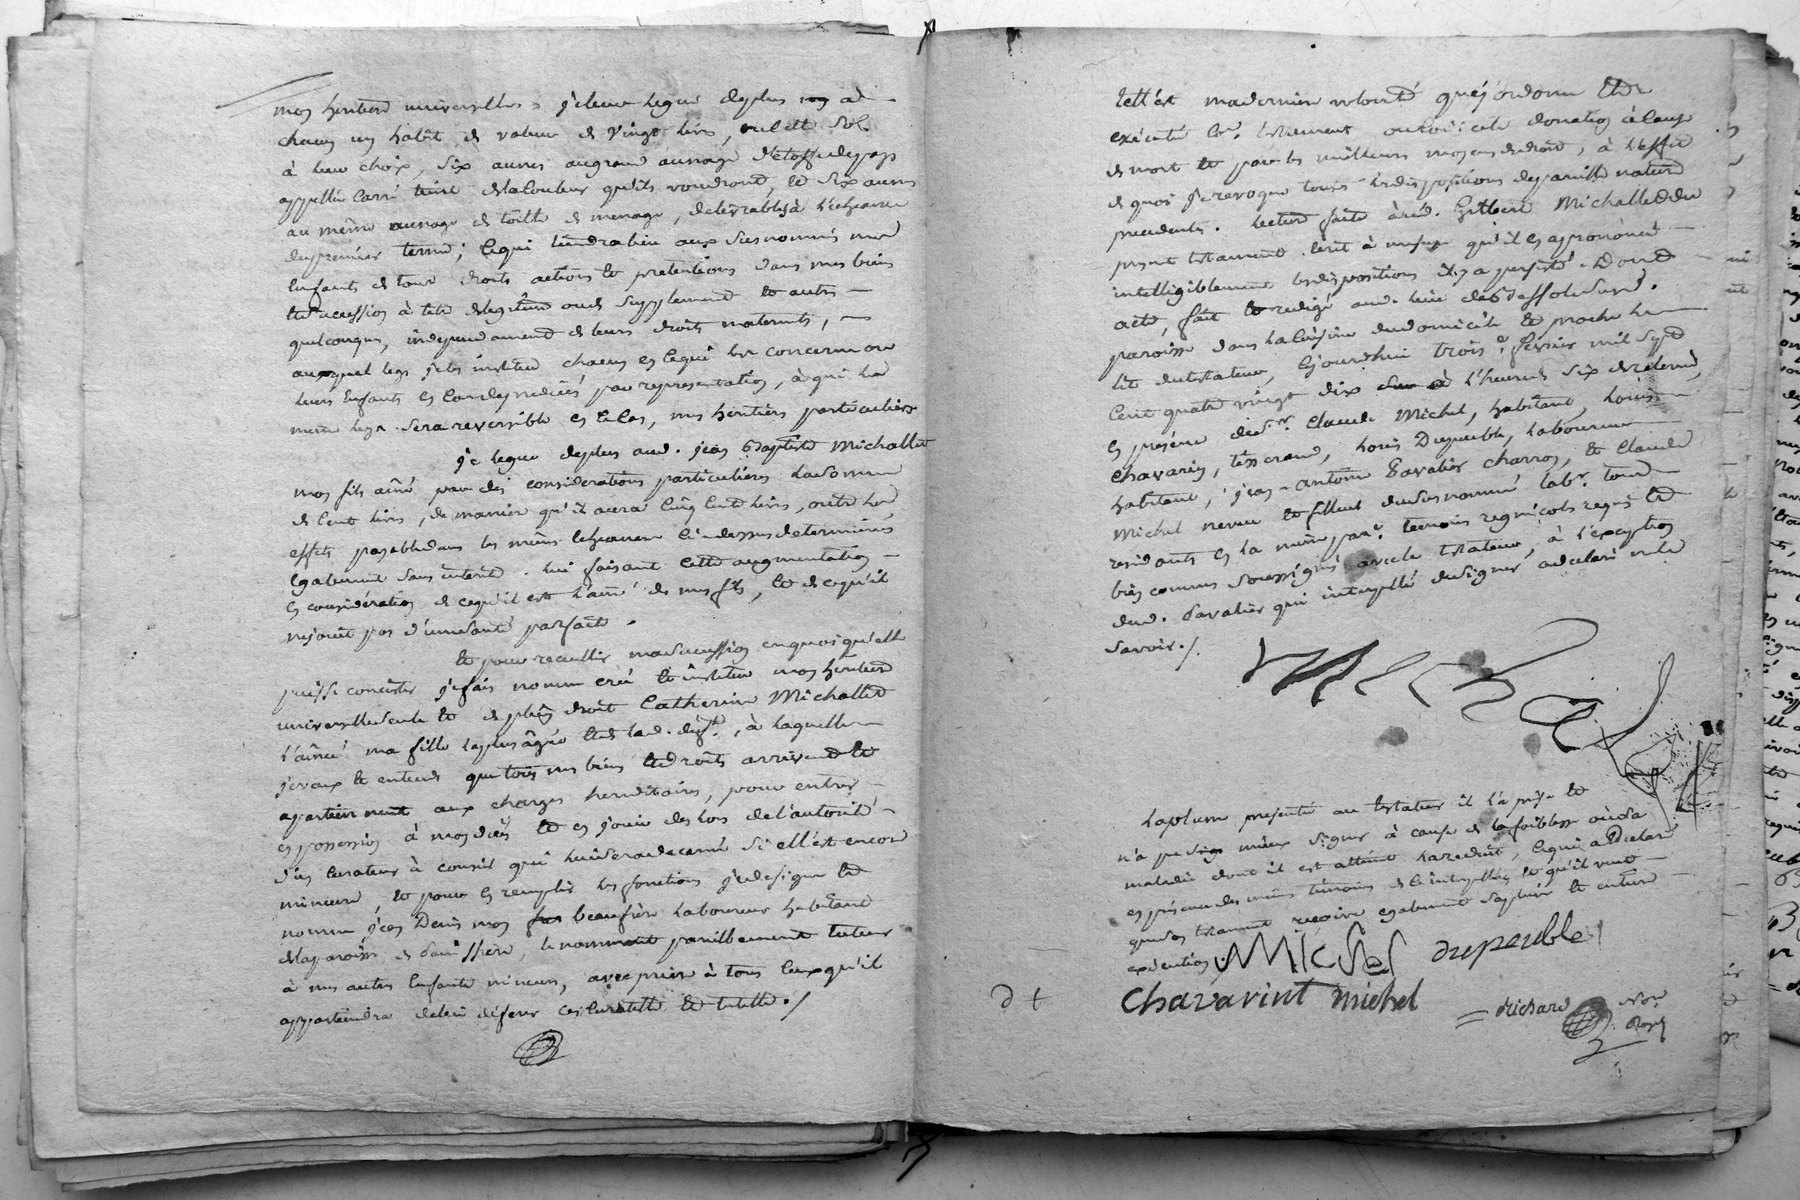 mon heritiere universelle. je leur legue deplus à
chacun un habit de valeur de vingt livres,
à leur choix, six aunes au grand aunage d'étoffe de pays
appellée carré teint de la couleur qu'ils voudront, et six aunes
au même aunage de toille de menage, delivrables à l'echeance
du premier terme; ce qui tiendra lieu aux susnommés mes
enfants de tous droits actions et pretentions dans mes biens
et succession à titre de legitime ou de supplement et autres
quelconques, independament de leurs droits maternels,
auxquels legs je les institue chacun en ce qui les concerne ou
leurs enfants en cas de predecès par representation, à qui le
même legs sera reversible en ce cas, mes heritiers particuliers
je legue deplus aud. jean Baptiste Michallet
mon fils ainé par des considerations particulieres la somme
de cent livres, de maniere qu'il aura cinq cent livres, outre les
effets payables dans les mêmes echeances ci-dessus determinées
egalement sans interêt. lui faisant cette augmentation
en consideration de ce qu'il est l'ainé de mes fils, et de ce qu'il
ne jouit pas d'une santé parfaite.
et pour recueillir ma succession en quoi qu'elle
puisse concister je fais nomme créé et institue mon heritiere
universelle seule et de plein droit Catherine Michallet
l'ainée ma fille la plus âgée et de lad. def.te, à laquelle
je veux et entends que tous mes biens et droits arrivent et
apartiennent aux charges hereditaires, pour entrer
en possession à mon décès et en jouir des lors de l'autorité
d'un curateur à conseil qui lui sera decerné si elle est encore
mineure, et pour en remplir les fonctions je designe et
nomme jean Denis mon beaufrère laboureur habitant
de la paroisse de, le nommant pareillement tuteur
à mes autres enfants mineurs, avec priere à tous ceux qu'il
appartiendra de lui déferer ces curatelle et tutelle./
telle est ma derniere volonté que j'ordonne être
executée par testament codicile donation à cause
de mort et par les meilleurs moyens de droit, à l'effet
de quoi je revoque toutes les dispositions de pareille nature
precedentes. lecture faite aud. Gilbert Michallet du
present testament écrit à mesure qu'il en a prononcé
intelligiblement les dispositions il y a persisté. Dont
acte, fait et redigé aud. lieu de dessolusure.
paroisse dans la cuisine du domicile et proche le
lit du testateur, cejourd'hui trois.e fevrier mil sept
cent quatre vingt dix à l'heure de six de relevée,
en presence de s.r Claude Michel, habitant, Louis
Chavarin, tisserand, Louis Dupeuble, laboureur
habitant, jean-antoine Pavalier charron, et Claude
Michel neveu et filleul dudit susnommé lab.r tous
residants en la même par.se temoins regnicoles requis et
bien connus soussignés avec le testateur, à l'exception
dud. Pavalier qui interpellé de signer a declaré ne le
savoir./.
Michal
la plume presentée au testateur il l'a prise et
n'a pu signer mieux à cause de la foiblesse où sa
maladie dont il est atteint l'a reduit, ce qui a declaré
en presence des mêmes temoins de ce interpellé, et qu'il veut
que son testament reçoive egalement sa pleine et entiere
execution.
Michel dupeuble
Chavarint michel
richard Nore
Royal